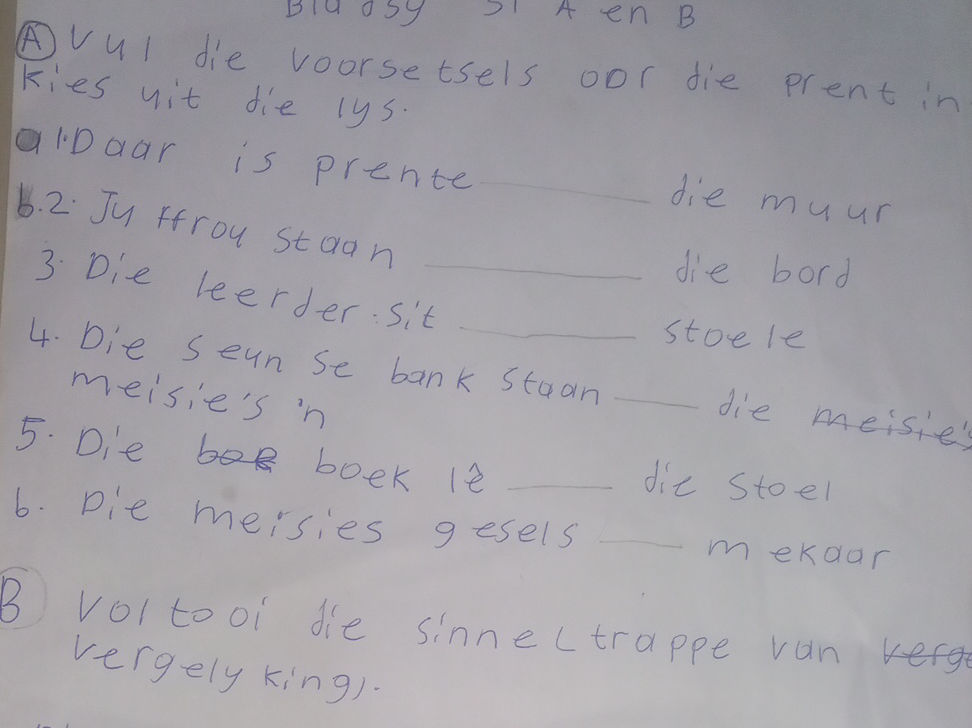 Bladsy 51 A en B
A Vul die voorsetsels oor die prent in
Kies uit die lys.
a 1. Daar is prente ______ die muur
b. 2. Juffrou staan ______ die bord
3. Die leerder sit ______ stoele
4. Die seun se bank staan ______ die meisie's
meisie's 'n
5. Die boe boek lê ______ die stoel
6. Die meisies gesels ______ mekaar
B Voltooi die sinneltrappe van
vergelyking).